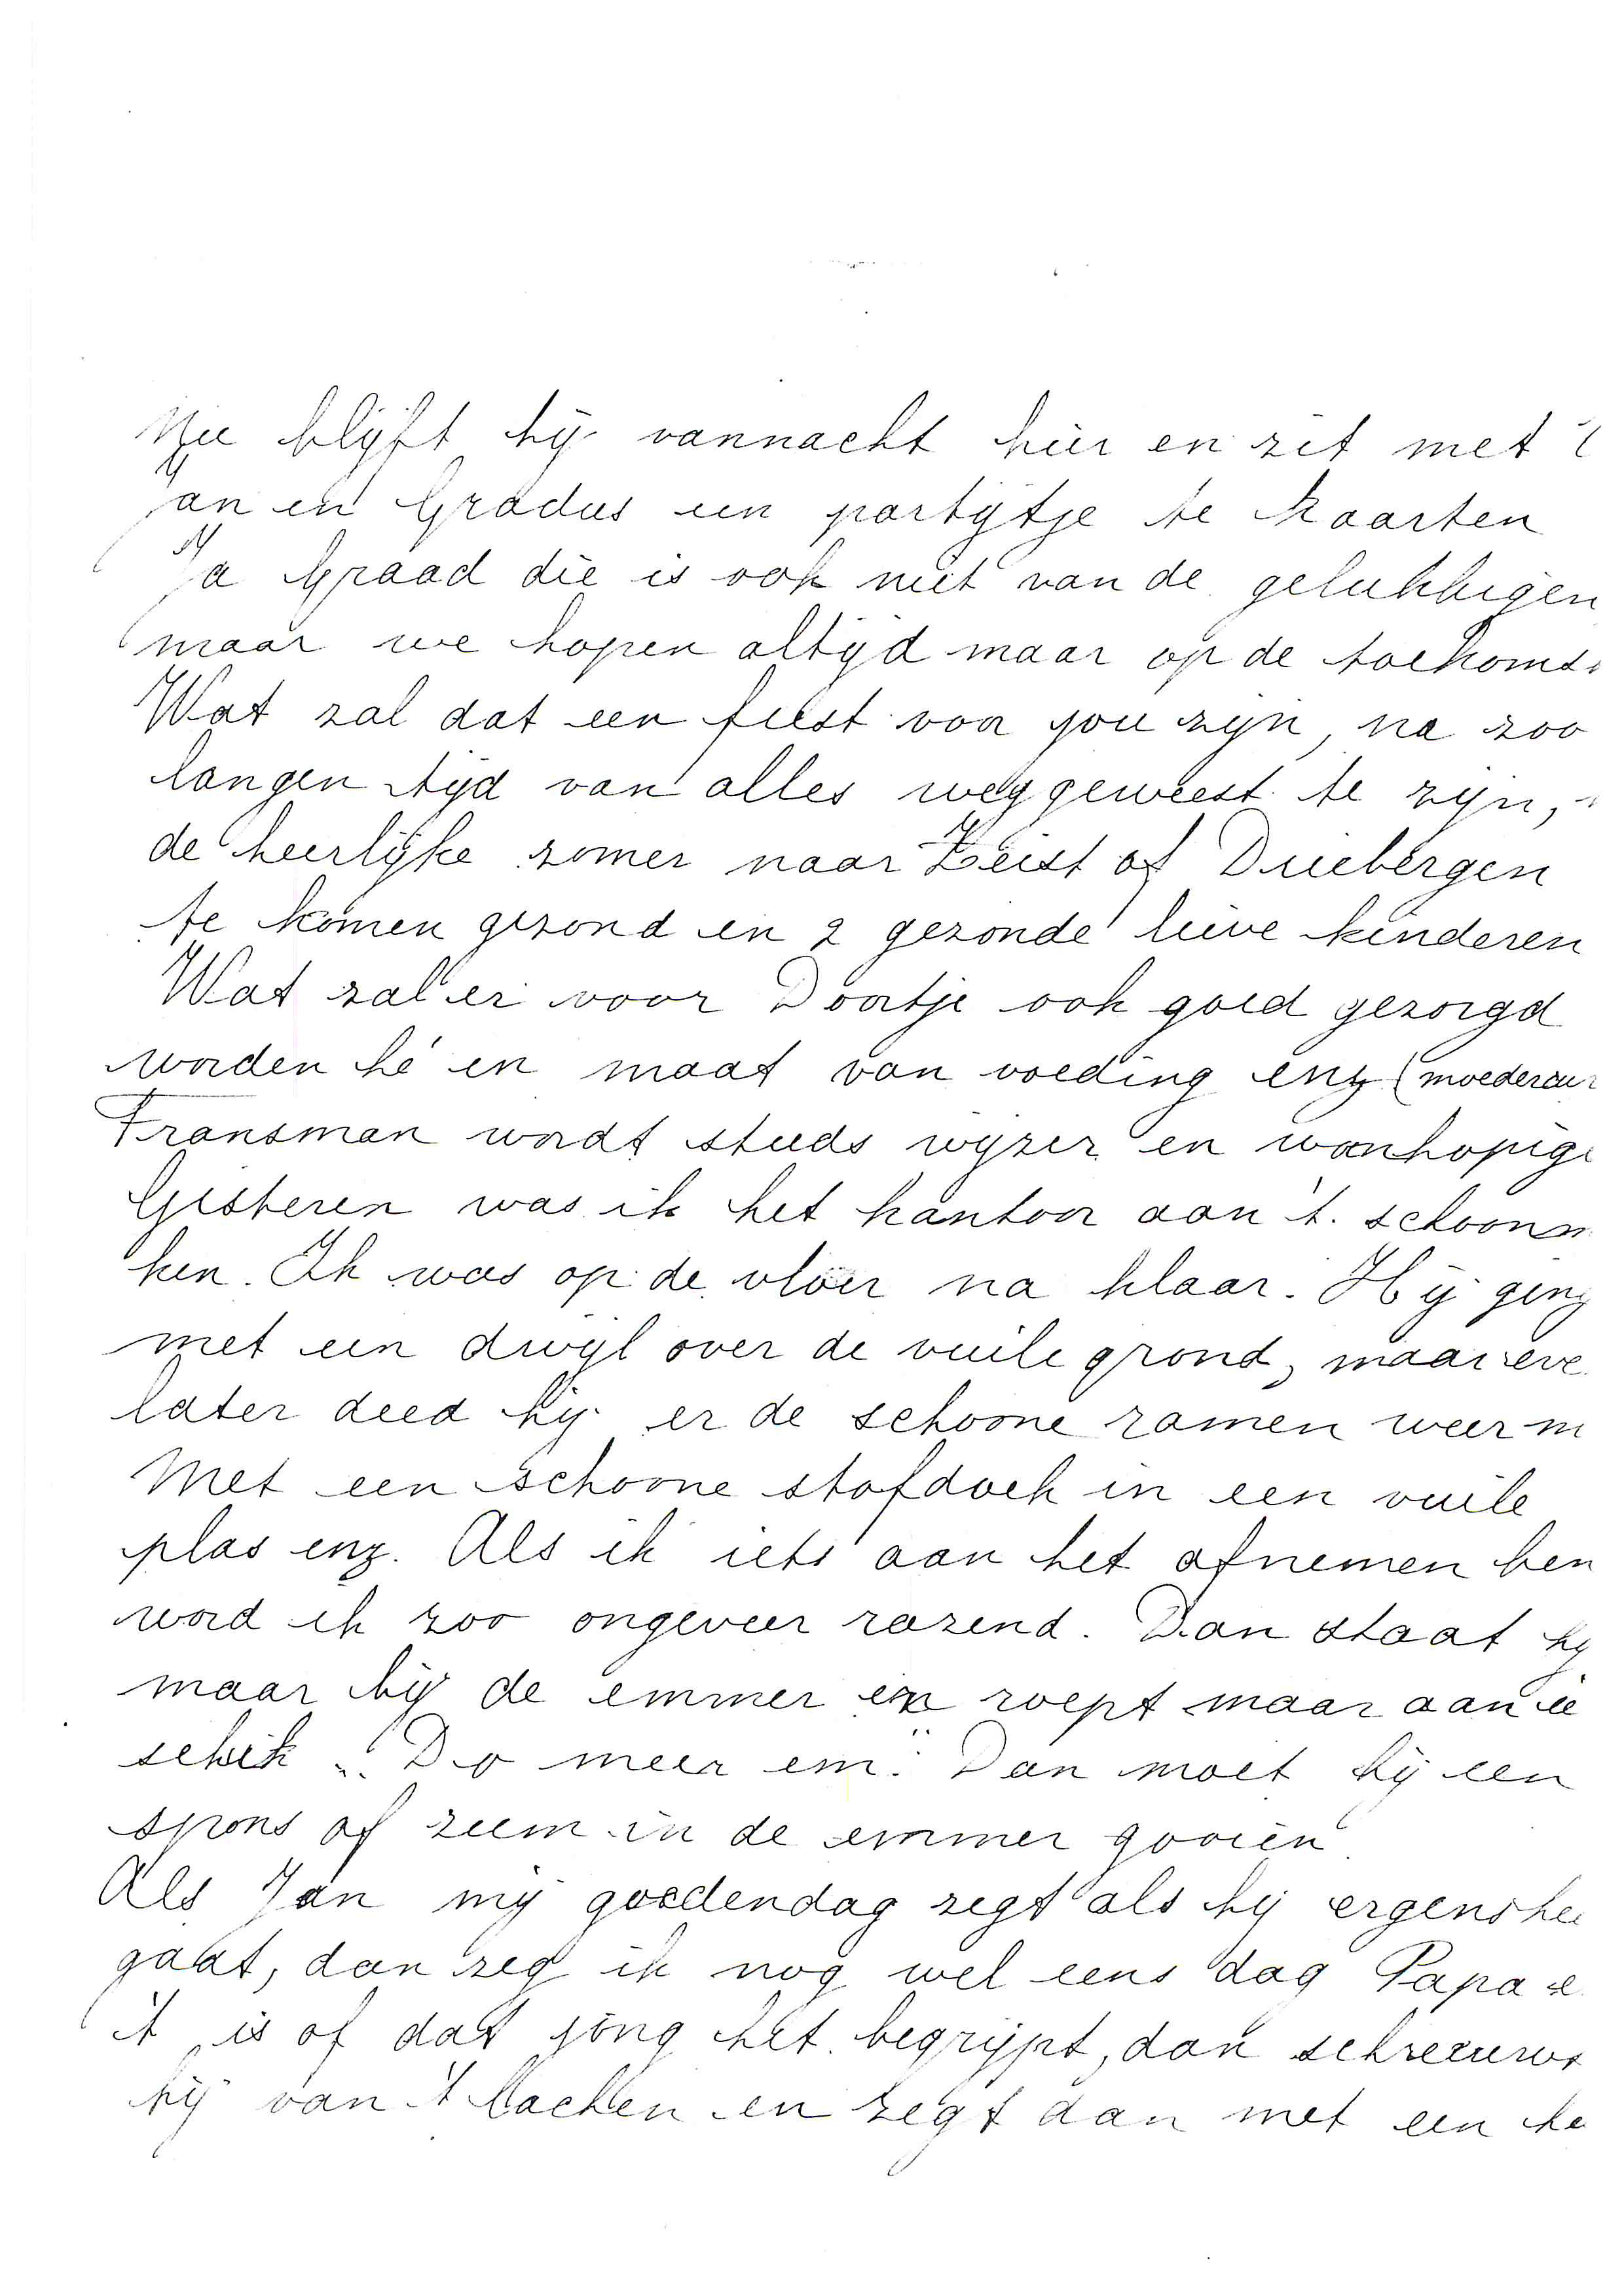 Nu blijft hij vannacht hier en zit met
Jan en Gradus een partijtje te kaarten
Ja Graad die is ook niet van de gelukkigen
maar we hopen altijd maar op de toekomst
Wat zal dat een feest voor jou zijn, na zoo
langen tijd van alles weggeweest te zijn,
de heerlijke zomer naar Zeist of Driebergen
te komen gezond en 2 gezonde lieve kinderen
Wat zal er voor Doortje ook goed gezorgd
worden hé en maat van voeding enz (moedercur
Fransman wordt steeds wijzer en wanhopige
Gisteren was ik het kantoor aan 't. schoonm
ken. Ik was op de vloer na klaar. Hij ging
met een dwijl over de vuile grond, maar eve
later deed hij er de schoone ramen weer m
Met een schoone stofdoek in een vuile
plas enz. Als ik iets aan het afnemen ben
word ik zoo ongeveer razend. Dan staat hij
maar bij de emmer en roept maar aan ee
schik „Do meer em." Dan moet hij een
spons of zeem in de emmer gooien
Als Jan mij goedendag zegt als hij ergens hee
gaat, dan zeg ik nog wel eens dag Papa e
't is of dat jong het begrijpt, dan schreeuwt
hij van 't lachen en zegt dan met een he